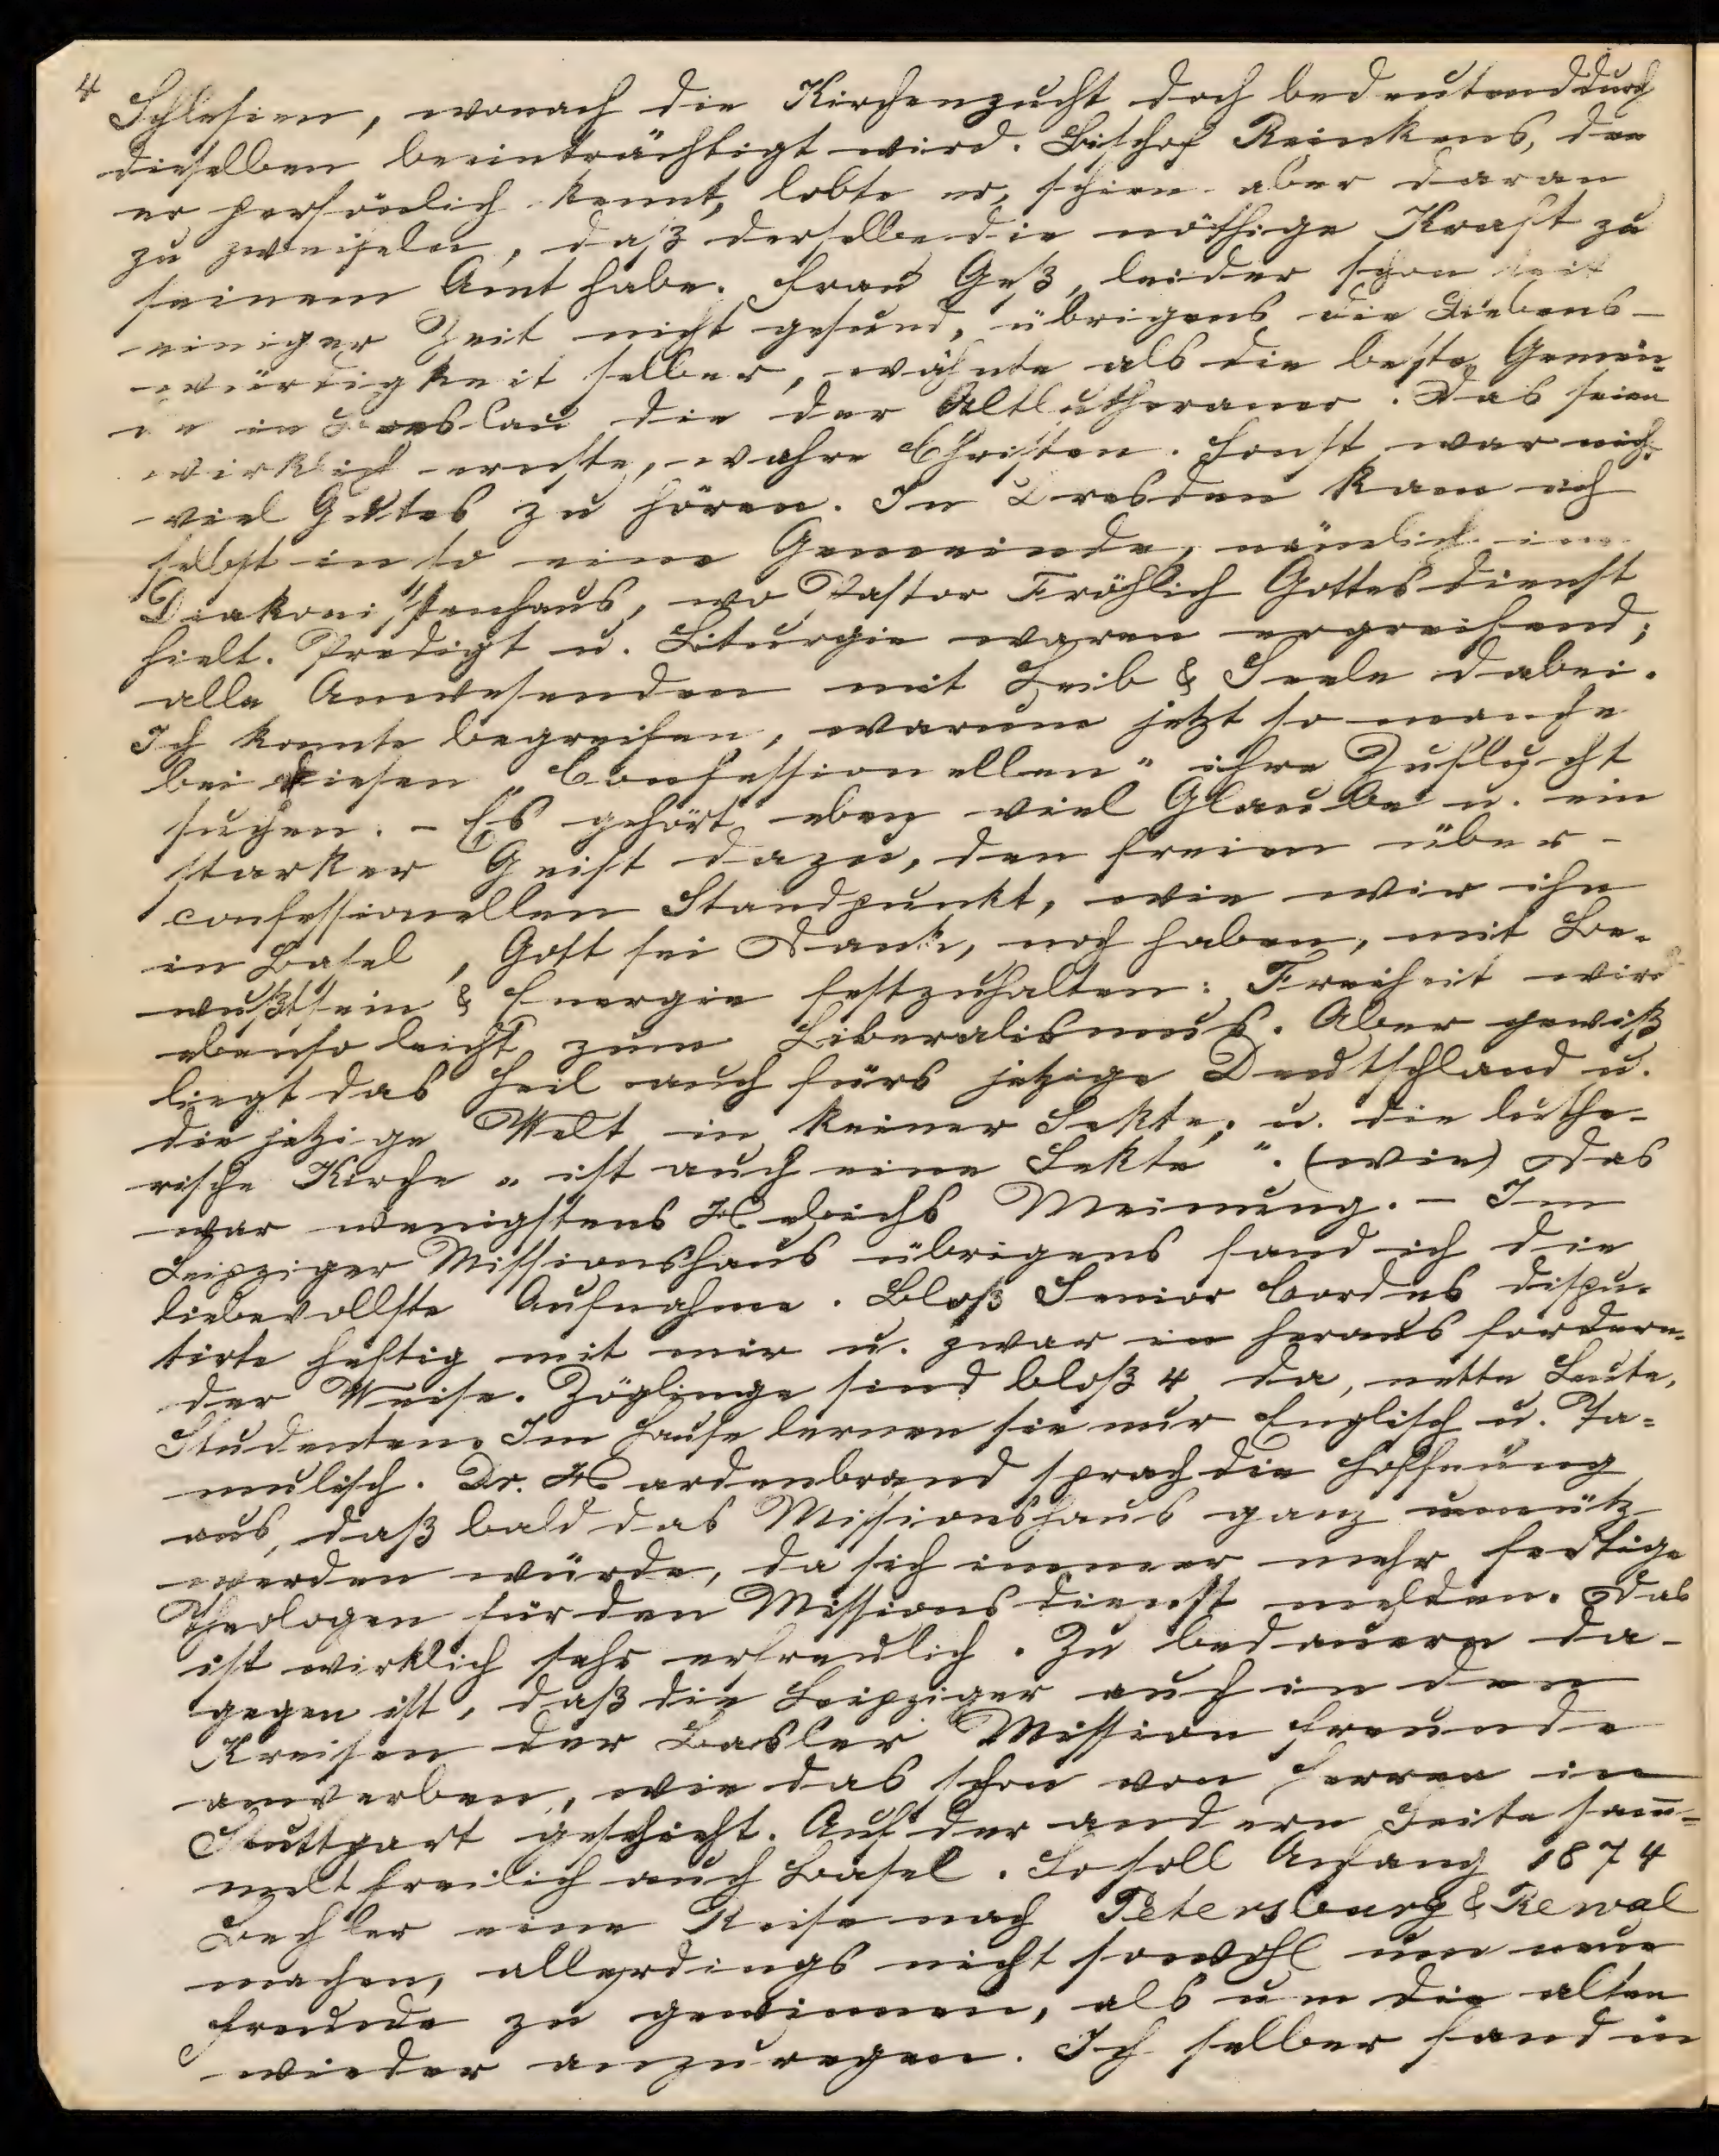 4
Schlesien, wonach die Kirchenzucht doch bedeutend durch
dieselben beeinträchtigt wird. Bischof Reinkens, den
er persönlich kennt, lobte er, schien aber daran
zu zweifeln, daß derselbe die nöthige Kraft zu
seinem Amt habe. Frau Geß, leider schon seit
einiger Zeit nicht gesund, übrigens die Liebens-
würdigkeit selber, wähnte als die beste Gemein-
de in Breslau die der Altlutheraner. Das seien
wirklich ernste, wahre Christen. Sonst war nicht
viel Gutes zu hören. In Dresden kam ich
selbst in so eine Gemeinde, nämlich im
Diakonissenhaus, wo Pastor Fröhlich Gottesdienst
hielt. Predigt u. Liturgie waren ergreifend;
alle Anwesenden mit Leib & Seele dabei.
Ich konnte begreifen, warum jetzt so manche
bei diesen „Confessionellen" ihre Zuflucht
suchen. - Es gehört eben viel Glaube u. ein
starker Geist dazu, den freien über-
confessionellen Standpunkt, wie wir ihn
in Basel, Gott sei Dank, noch haben, mit Be-
wußtsein & Energie festzuhalten: Freiheit wird
ebenso leicht zum Liberalismus. Aber gewiß
liegt das Heil auch fürs jetzige Deutschland u.
die jetzige Welt in keiner Sekte; u. die luthe-
rische Kirche „ist auch eine Sekte". (wie) Das
war wenigstens Hebichs Meinung. - Im
Leipziger Missionshaus übrigens fand ich die
liebevollste Aufnahme. Bloß Senior Cordes dispu-
tirte heftig mit mir u. zwar in herausfordern-
der Weise. Zöglinge sind bloß 4 da, nette Leute,
Studenten. Im Hause lernen sie nur Englisch u. Ta-
mulisch. Dr. Hardenbrand sprach die Hoffnung
aus, daß bald das Missionshaus ganz unnütz
werden würde, da sich immer mehr fertige
Theologen für den Missionsdienst melden. Das
ist wirklich sehr erfreulich. Zu bedauern da-
gegen ist, daß die Leipziger auch in den
Kreisen der Basler Mission Freunde
anwerben, wie das schon von Herren in
Stuttgart geschieht. Auf der andern Seite sam̅-
melt freilich auch Basel. So soll Anfang 1874
Bechler eine Reise nach Petersburg & Rewal
machen, allerdings nicht sowohl um neue
Freunde zu gewinnen, als um die alten
wieder anzuregen. Ich selber fand in